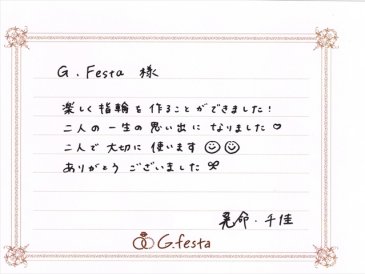 G.Festa 様
楽しく指輪を作ることができました!
二人の一生の思い出になりました♡
二人で大切に使います☺☺
ありがとうございました
亮命・千佳
G.festa